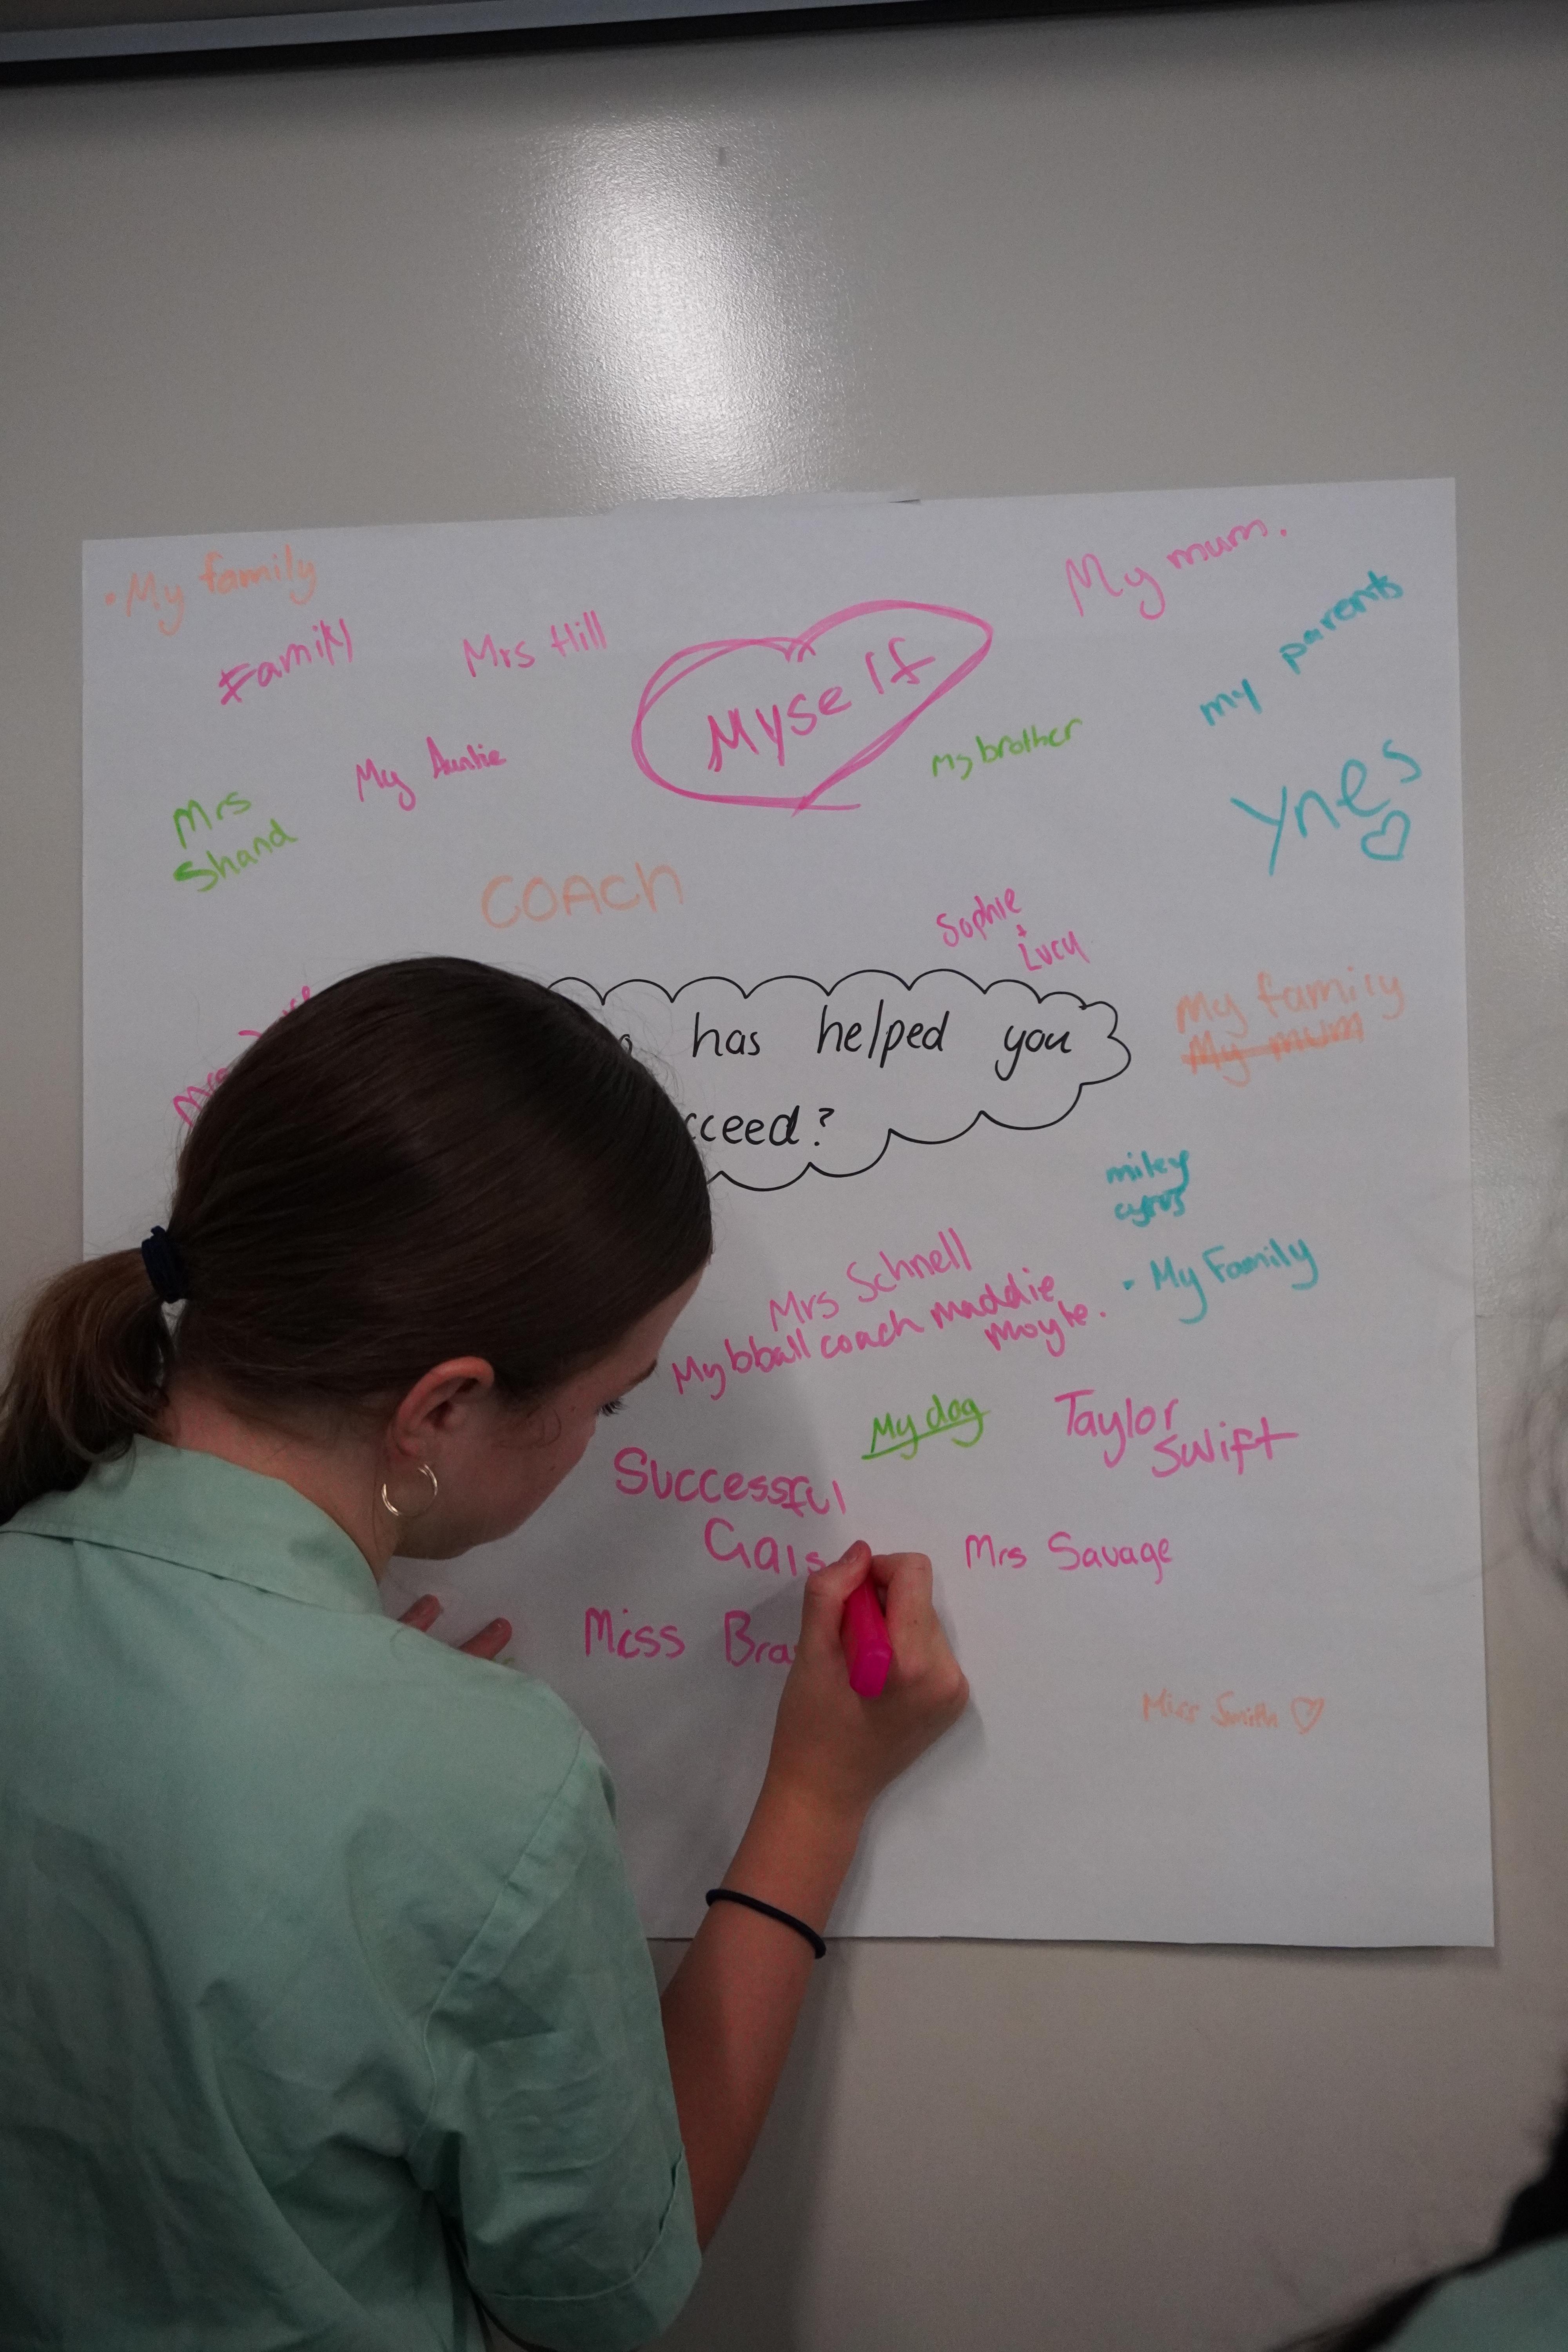 My family
My mum.
my parents
Family
Mrs Hill
Myself
My brother
My Auntie
Mrs
Shand
Ynes
COACH
Sophie
+
Lucy
has helped you
My family
My mum
Mrs
cceed?
miley
cyrus
Mrs Schnell
My Family
My bball coach maddie
Moyle.
My dog
Taylor
Swift
Successful
Gals
Mrs Savage
Miss Bra
Miss Smith